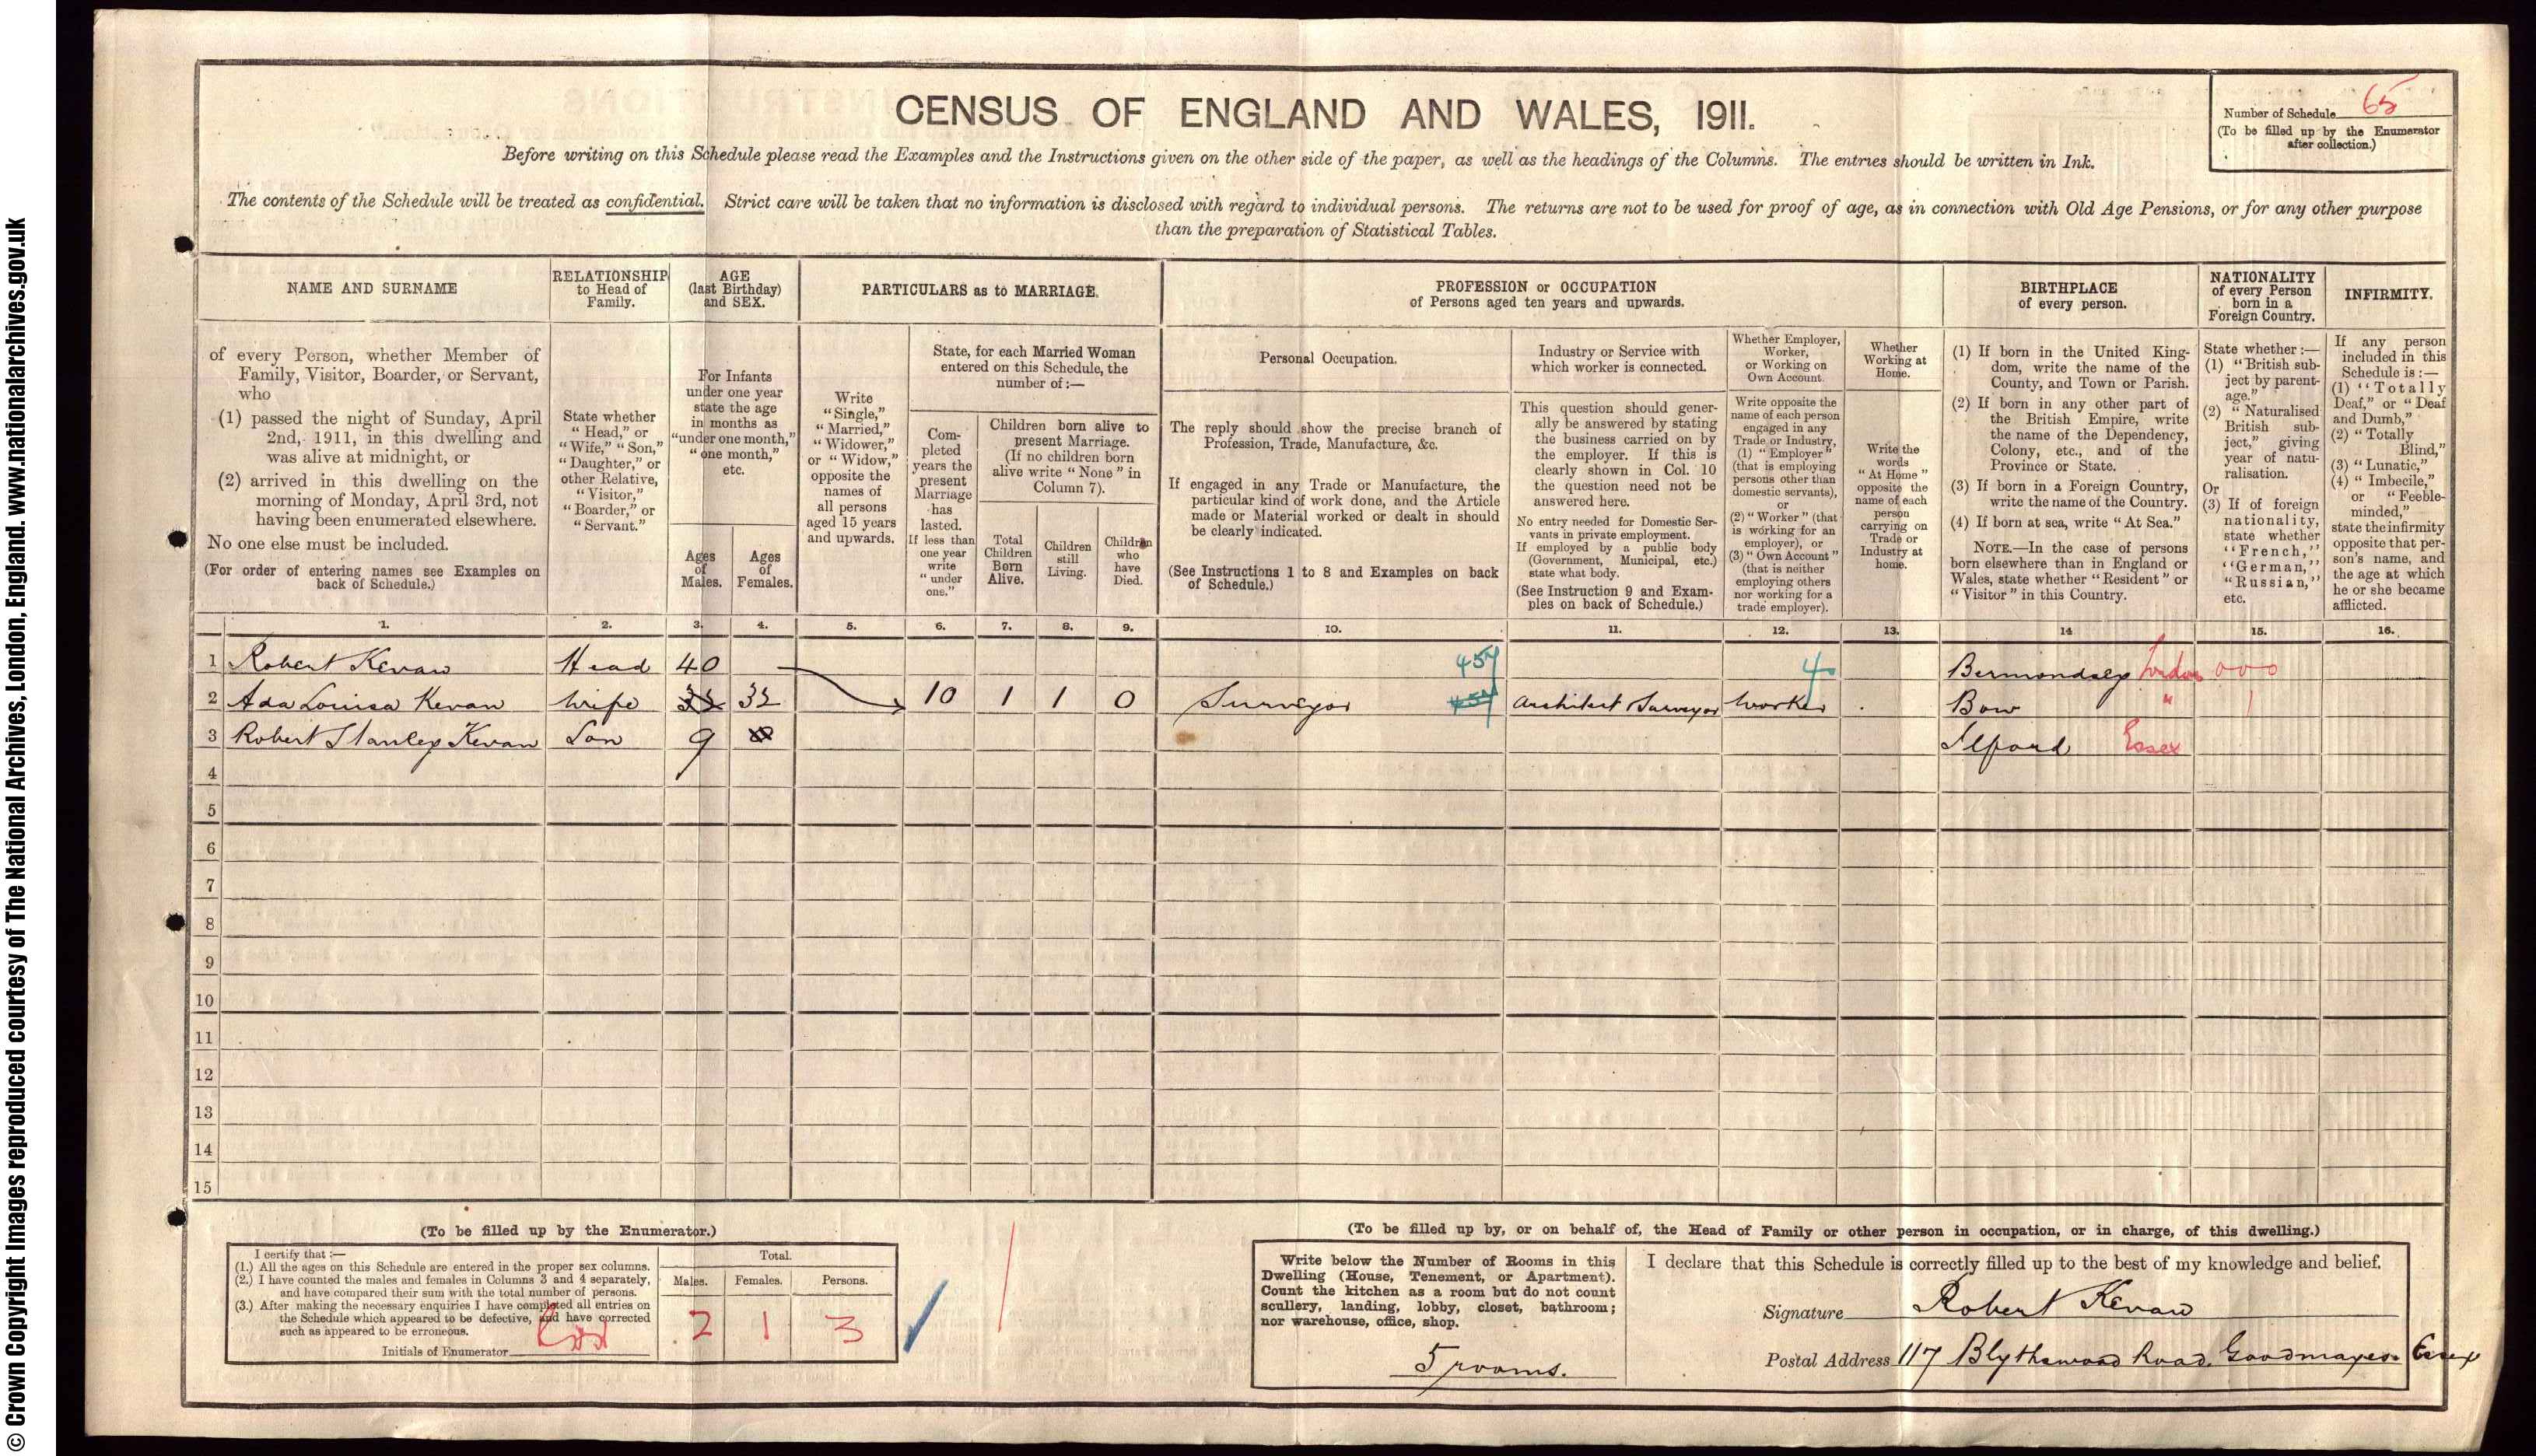 © Crown Copyright Images reproduced courtesy of The National Archives, London, England. www.nationalarchives.gov.uk
CENSUS OF ENGLAND AND WALES, 1911.
Number of Schedule 65
(To be filled up by the Enumerator
after collection.)
Before writing on this Schedule please read the Examples and the Instructions given on the other side of the paper, as well as the headings of the Columns. The entries should be written in Ink.
The contents of the Schedule will be treated as confidential. Strict care will be taken that no information is disclosed with regard to individual persons. The returns are not to be used for proof of age, as in connection with Old Age Pensions, or for any other purpose
than the preparation of Statistical Tables.
NAME AND SURNAME
RELATIONSHIP
to Head of
Family.
AGE
(last Birthday)
and SEX.
PARTICULARS as to MARRIAGE.
PROFESSION or OCCUPATION
of Persons aged ten years and upwards.
BIRTHPLACE
of every person.
NATIONALITY
of every Person
born in a
Foreign Country.
INFIRMITY.
of every Person, whether Member of
Family, Visitor, Boarder, or Servant,
who
(1) passed the night of Sunday, April
2nd, 1911, in this dwelling and
was alive at midnight, or
(2) arrived in this dwelling on the
morning of Monday, April 3rd, not
having been enumerated elsewhere.
No one else must be included.
(For order of entering names see Examples on
back of Schedule.)
State whether
"Head," or
"Wife," "Son,"
"Daughter," or
other Relative,
"Visitor,"
"Boarder," or
"Servant."
For Infants
under one year
state the age
in months as
"under one month,"
"one month,"
etc.
Ages
of
Males.
Ages
of
Females.
Write
"Single,"
"Married,"
"Widower,"
or "Widow,"
opposite the
names of
all persons
aged 15 years
and upwards.
State, for each Married Woman
entered on this Schedule, the
number of:—
Com-
pleted
years the
present
Marriage
has
lasted.
If less than
one year
write
"under
one."
Children born alive to
present Marriage.
(If no children born
alive write "None" in
Column 7).
Total
Children
Born
Alive.
Children
still
Living.
Children
who
have
Died.
Personal Occupation.
The reply should show the precise branch of
Profession, Trade, Manufacture, &c.
If engaged in any Trade or Manufacture, the
particular kind of work done, and the Article
made or Material worked or dealt in should
be clearly indicated.
(See Instructions 1 to 8 and Examples on back
of Schedule.)
Industry or Service with
which worker is connected.
This question should gener-
ally be answered by stating
the business carried on by
the employer. If this is
clearly shown in Col. 10
the question need not be
answered here.
No entry needed for Domestic Ser-
vants in private employment.
If employed by a public body
(Government, Municipal, etc.)
state what body.
(See Instruction 9 and Exam-
ples on back of Schedule.)
Whether Employer,
Worker,
or Working on
Own Account.
Write opposite the
name of each person
engaged in any
Trade or Industry,
(1) "Employer"
(that is employing
persons other than
domestic servants),
or
(2) "Worker" (that
is working for an
employer), or
(3) "Own Account"
(that is neither
employing others
nor working for a
trade employer).
Whether
Working at
Home.
Write the
words
"At Home"
opposite the
name of each
person
carrying on
Trade or
Industry at
home.
(1) If born in the United King-
dom, write the name of the
County, and Town or Parish.
(2) If born in any other part of
the British Empire, write
the name of the Dependency,
Colony, etc., and of the
Province or State.
(3) If born in a Foreign Country,
write the name of the Country.
(4) If born at sea, write "At Sea."
NOTE.—In the case of persons
born elsewhere than in England or
Wales, state whether "Resident" or
"Visitor" in this Country.
State whether:—
(1) "British sub-
ject by parent-
age."
(2) "Naturalised
British sub-
ject," giving
year of natu-
ralisation.
Or
(3) If of foreign
nationality,
state whether
"French,"
"German,"
"Russian,"
etc.
If any person
included in this
Schedule is:—
(1) "Totally
Deaf," or "Deaf
and Dumb,"
(2) "Totally
Blind,"
(3) "Lunatic,"
(4) "Imbecile,"
or "Feeble-
minded,"
state the infirmity
opposite that per-
son's name, and
the age at which
he or she became
afflicted.
1. 2. 3. 4. 5. 6. 7. 8. 9. 10. 11. 12. 13. 14 15. 16.
1 Robert Kevan Head 40 457 4 Bermondsey London 000
2 Ada Louisa Kevan Wife 32 10 1 1 0 Surveyor 457 Architect Surveyor Worker Bow " 1
3 Robert Stanley Kevan Son 9 Ilford Essex
4
5
6
7
8
9
10
11
12
13
14
15
(To be filled up by the Enumerator.)
I certify that:—
(1.) All the ages on this Schedule are entered in the proper sex columns.
(2.) I have counted the males and females in Columns 3 and 4 separately,
and have compared their sum with the total number of persons.
(3.) After making the necessary enquiries I have completed all entries on
the Schedule which appeared to be defective, and have corrected
such as appeared to be erroneous.
Initials of Enumerator
Total.
Males. Females. Persons.
2 1 3
(To be filled up by, or on behalf of, the Head of Family or other person in occupation, or in charge, of this dwelling.)
Write below the Number of Rooms in this
Dwelling (House, Tenement, or Apartment).
Count the kitchen as a room but do not count
scullery, landing, lobby, closet, bathroom;
nor warehouse, office, shop.
5 rooms.
I declare that this Schedule is correctly filled up to the best of my knowledge and belief.
Signature Robert Kevan
Postal Address 117 Blythswood Road. Goodmayes. Essex